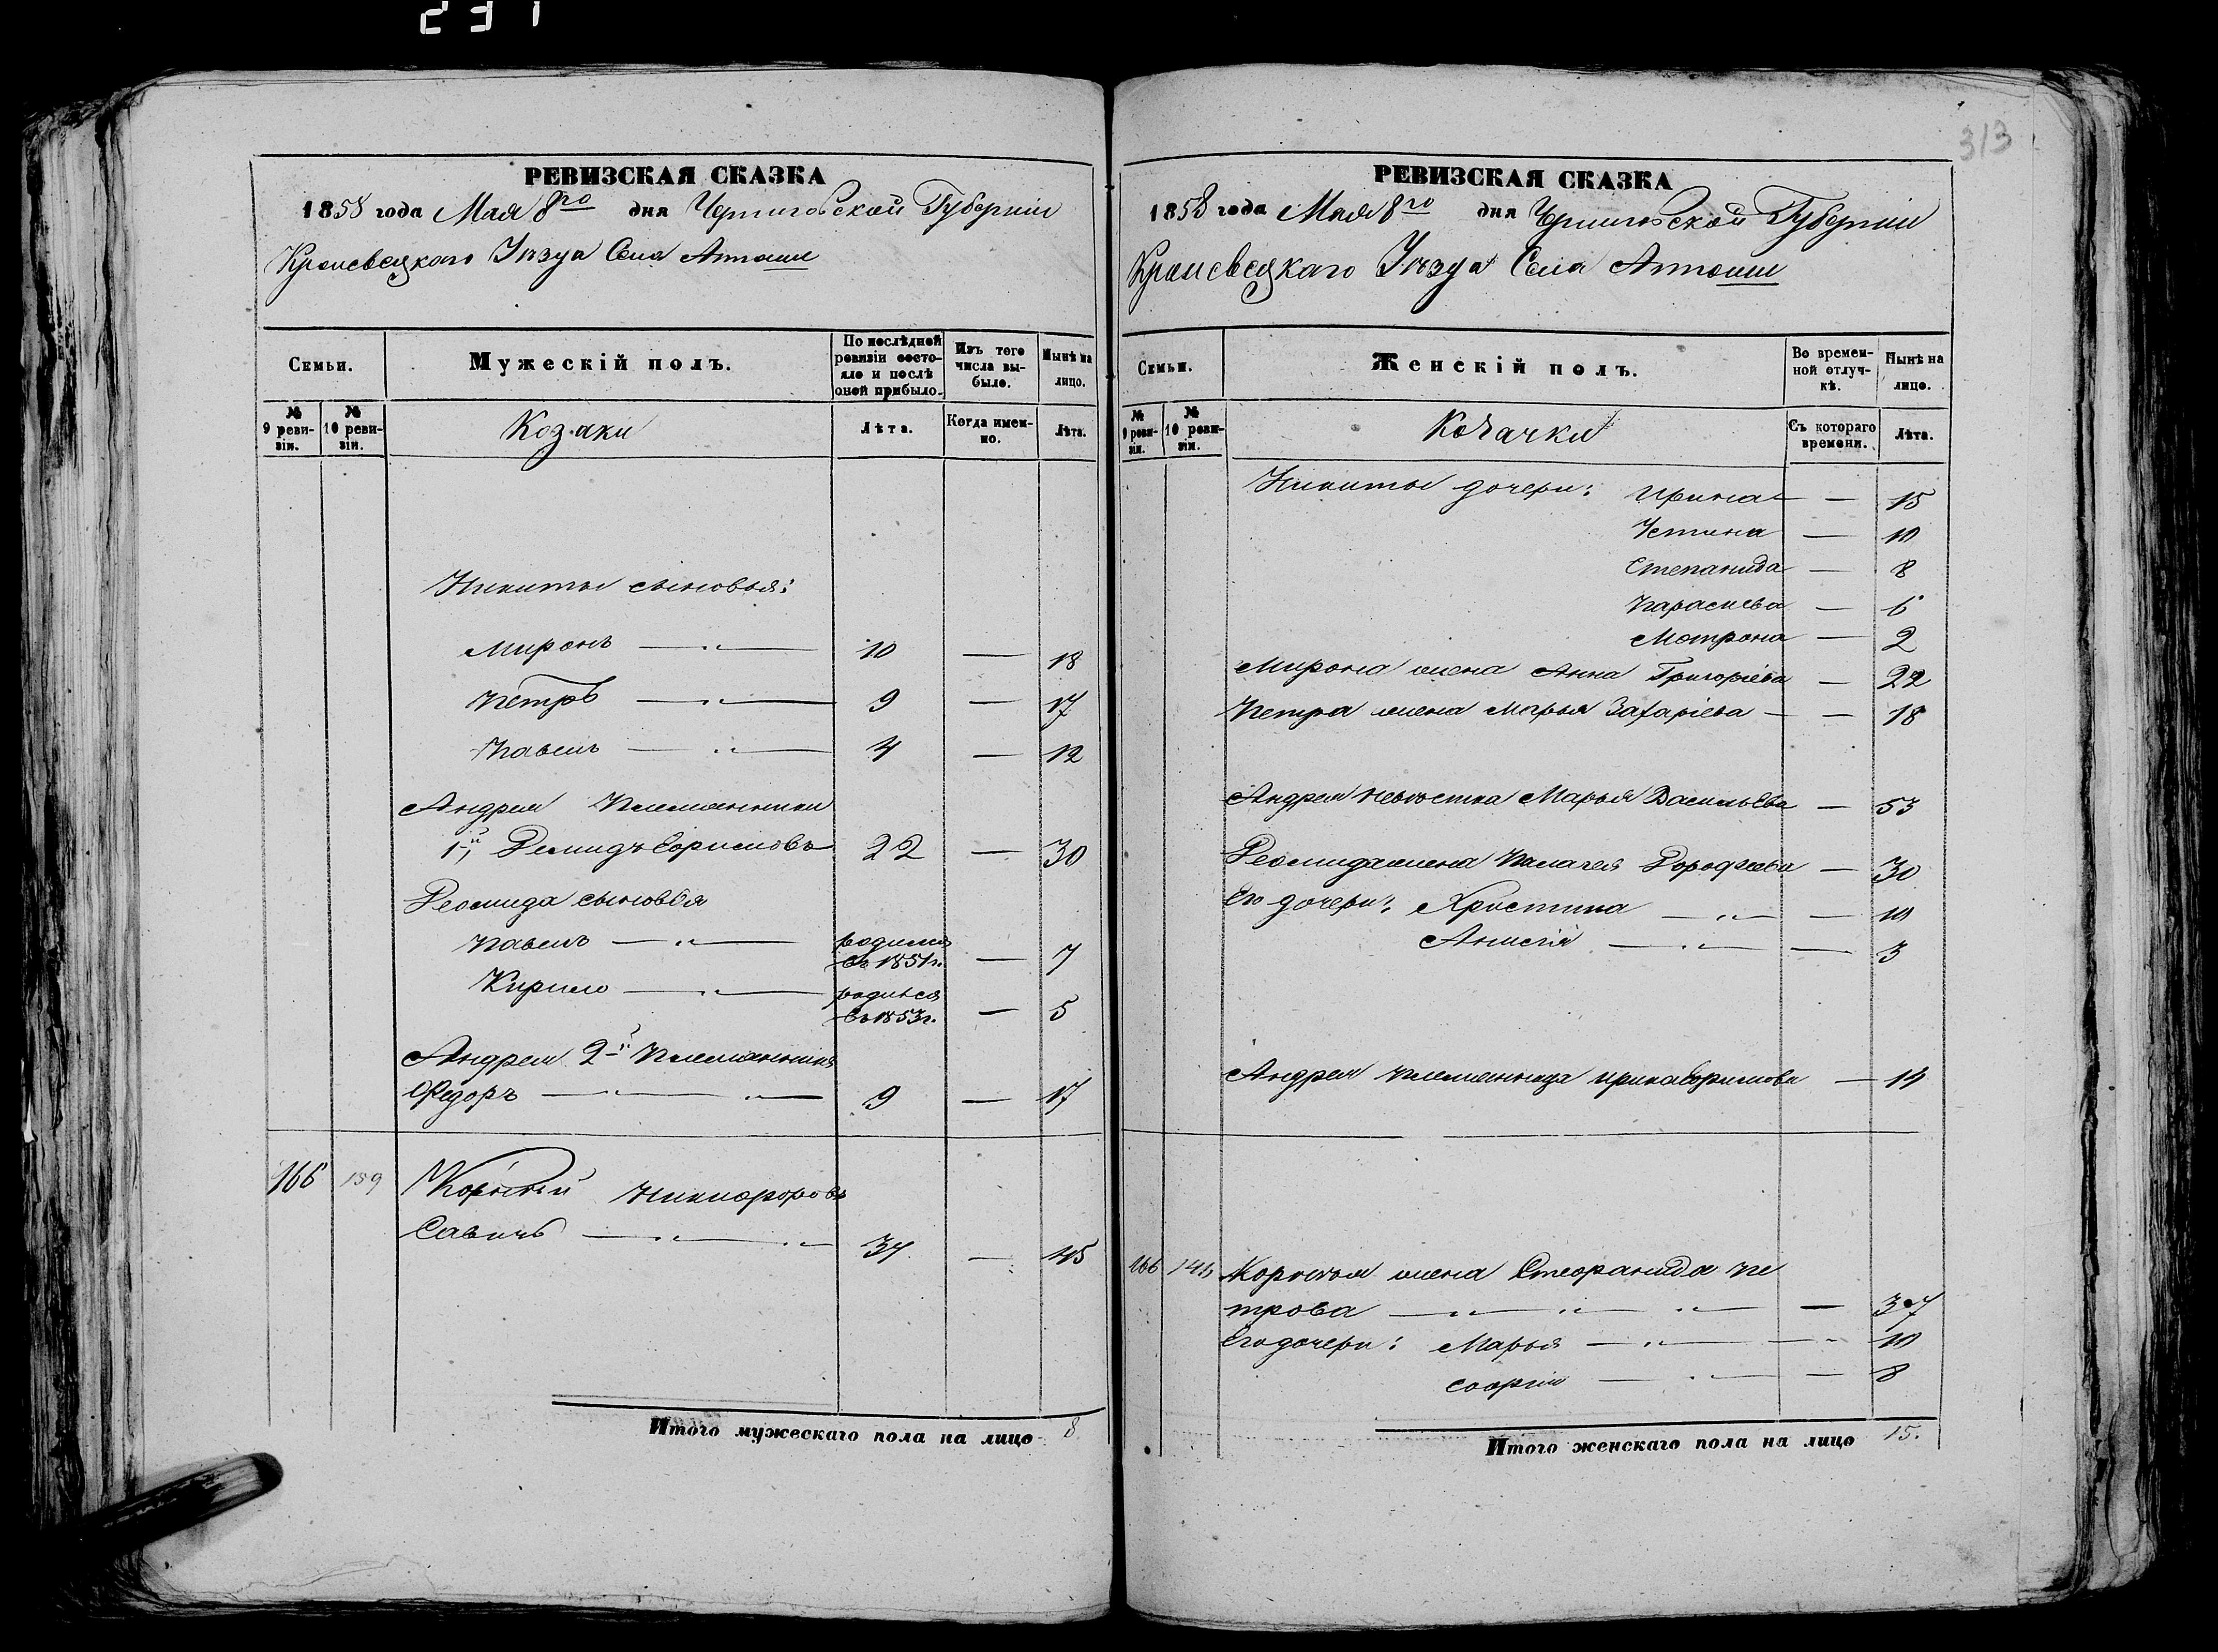 237
РЕВИЗСКАЯ СКАЗКА
1858 года Мая 8го дня Черниговской Губерніи
Кролевецкаго Уѣзда Села
Семьи.
Мужескій полъ.
По послѣдней ревизіи состояло и послѣ оной прибыло.
Изъ того числа выбыло.
Нынѣ на лицо.
№ 9 ревизіи.
№ 10 ревизіи.
Козаки
Лѣта.
Когда именно.
Лѣта.
Никиты сыновья:
Миронъ — 10 — 18
Петръ — 9 — 17
Павелъ — 4 — 12
Андрея Племянники
1й 22 — 30
сыновья
Павелъ — родился въ 1851г. — 7
Кирило — родился въ 1853г. — 5
Андрея 2й Племянникъ
Федоръ — 9 — 17
166 159 Корнѣй Никифоровъ
Савичъ — 37 — 45
Итого мужескаго пола на лицо 8
313
РЕВИЗСКАЯ СКАЗКА
1858 года Мая 8го дня Черниговской Губерніи
Кролевецкаго Уѣзда Села
Семьи.
Женскій полъ.
Во временной отлучкѣ.
Нынѣ на лицо.
№ 9 ревизіи.
№ 10 ревизіи.
Козачки
Съ котораго времени.
Лѣта.
Никиты дочери: Ирина — 15
Устина — 10
Степанида — 8
Параскева — 6
Мотрона — 2
Мирона жена Анна Григоріева — 22
Петра жена Марья Захаріева — 18
Андрея невѣстка Марья Васильева — 53
жена Пелагея Дорофѣева — 30
Его дочери: Христина — 10
Анисія — 3
Андрея племянница Ирина — 14
166 Корнѣя жена Стефанида Пе
трова — 37
Его дочери: Марья — 10
Софія — 8
Итого женскаго пола на лицо 15.